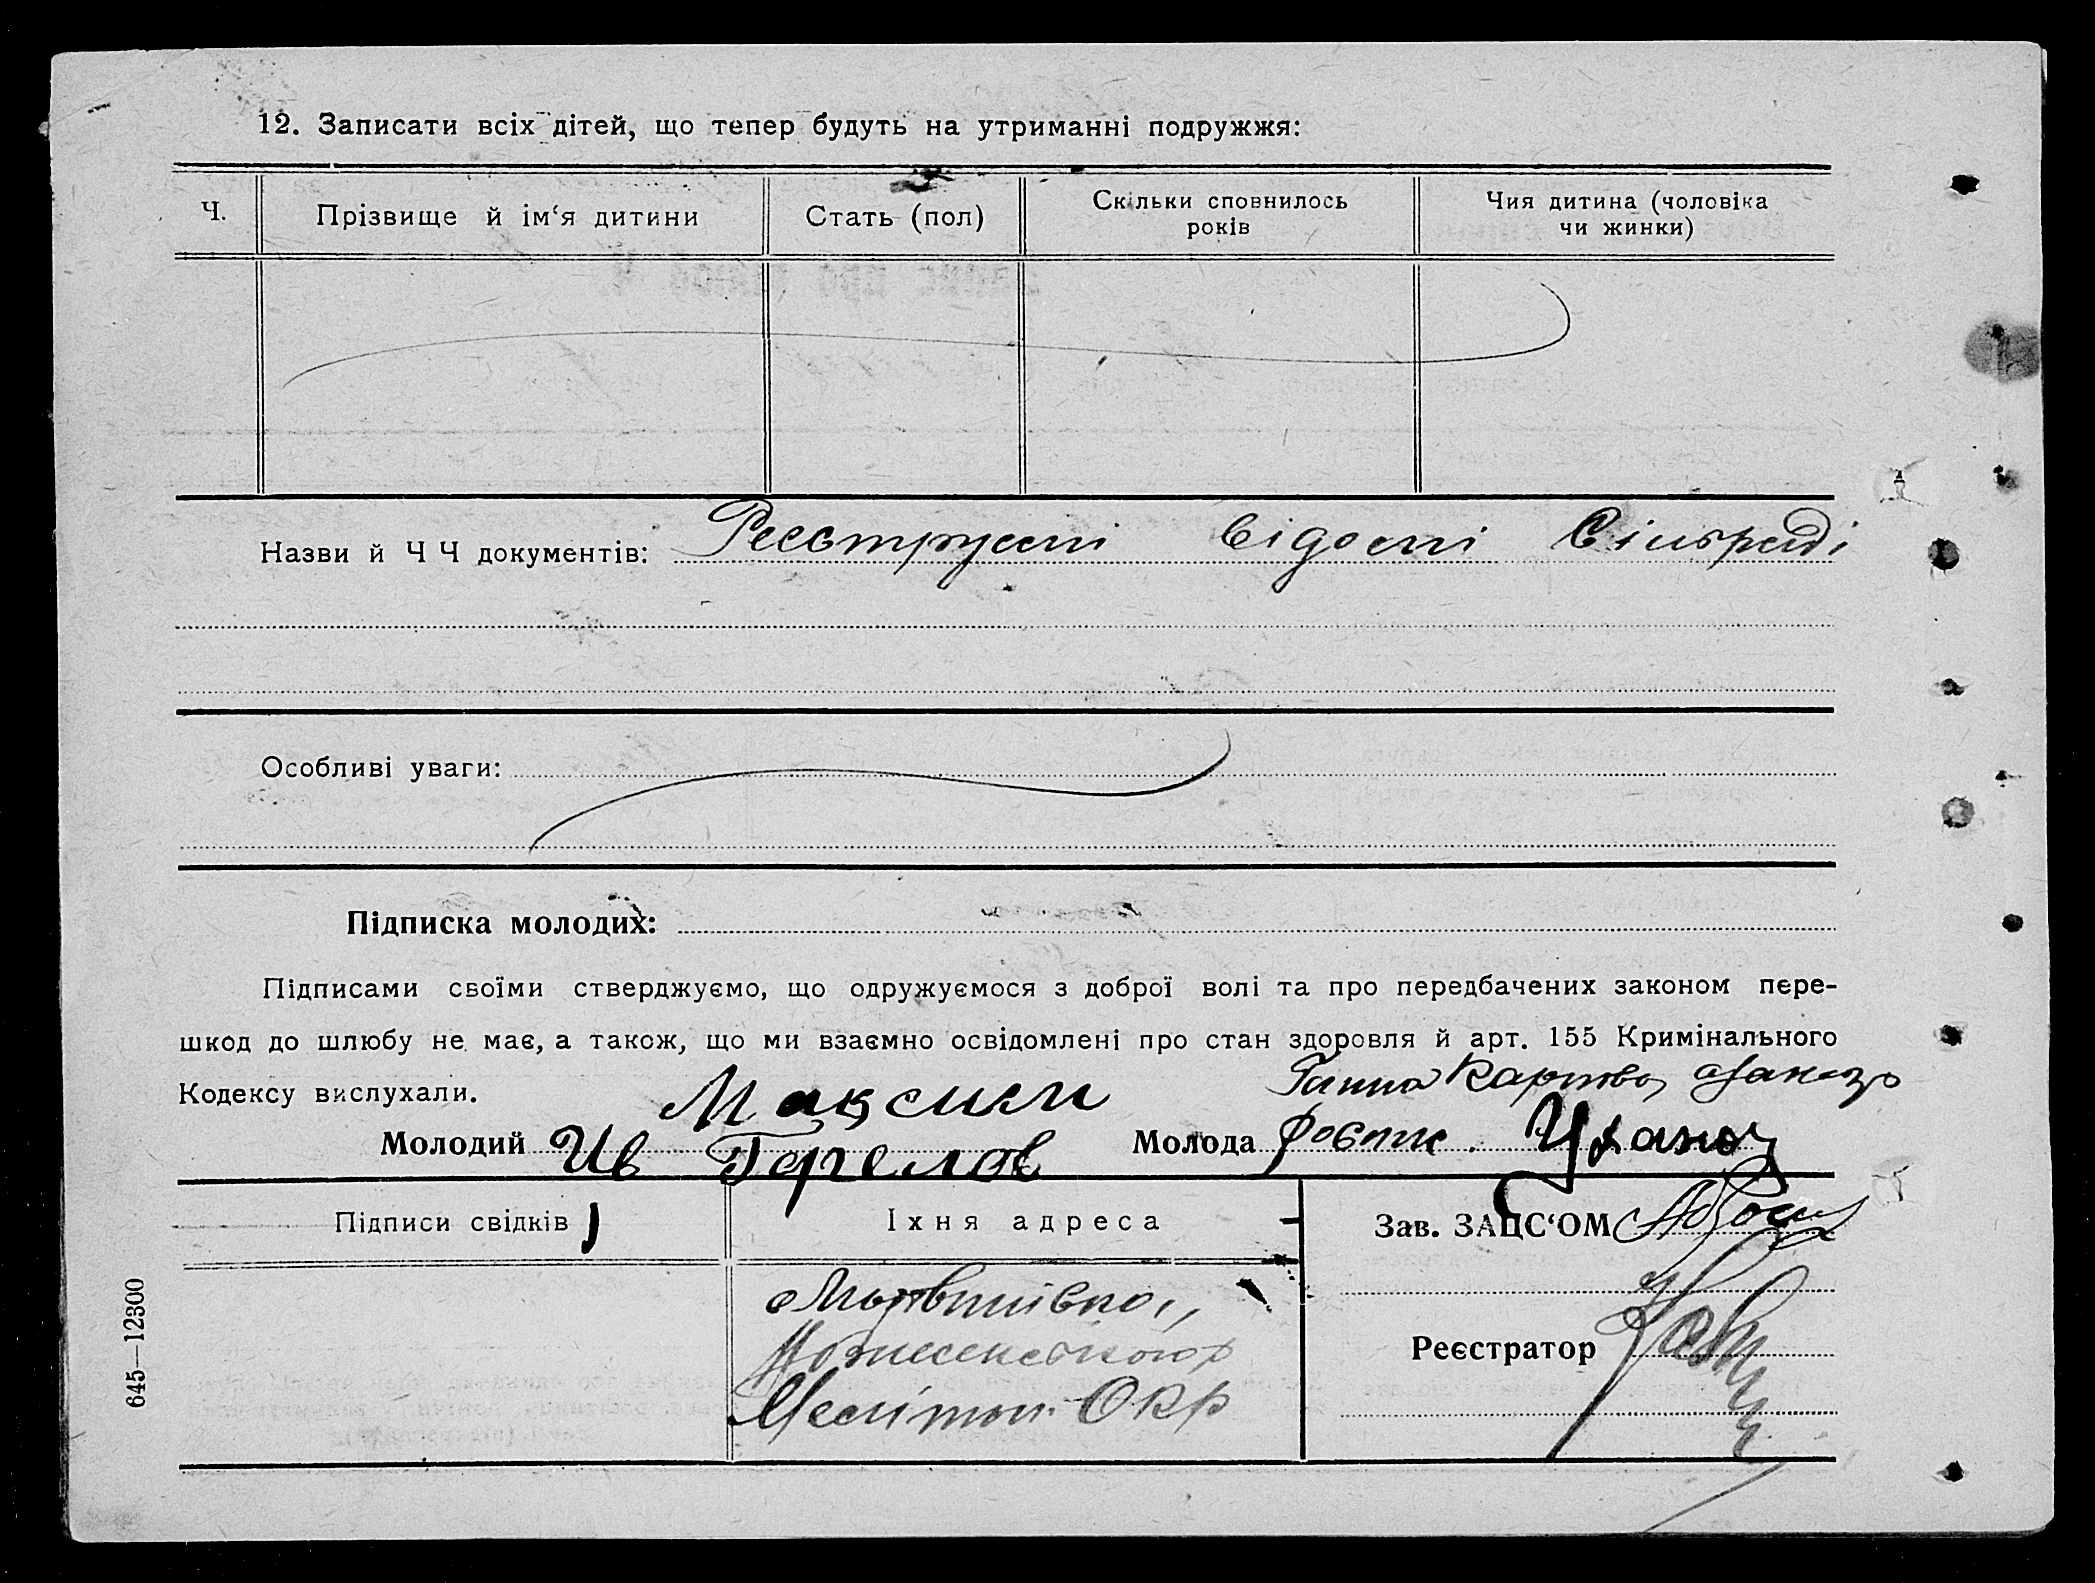 12. Записати всіх дітей, що тепер будуть на утриманні подружжя:
Ч.
Прізвище й ім‘я дитини
Стать (пол)
Скільки сповнилось
років
Чия дитина (чоловіка
чи жинки)
Назви й Ч Ч документів: Реєструєткі відомі Сільраді
Особливі уваги:
Підписка молодих:
Підписами своїми стверджуємо, що одружуємося з доброї волі та про передбачених законом пере-
шкод до шлюбу не має, а також, що ми взаємно освідомлені про стан здоровля й арт. 155 Кримінального
Кодексу вислухали.
Максим
Ганна
Молодий Ив Горелов
Молода
Підписи свідків
Їхня адреса
Зав. ЗАЦС‘ОМ
Мелітоп. Окр
Реєстратор
645—12300